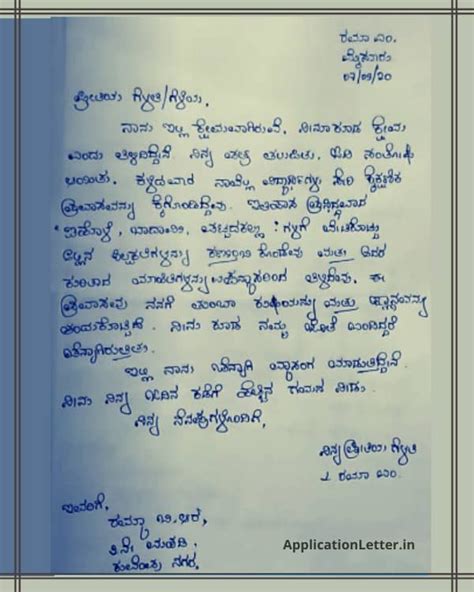 ರಮಾ ಎಂ.
ಮೈಸೂರು
೦೫/೦೫/೨೦
ಪ್ರೀತಿಯ ಗೆಳತಿ/ಗೆಳೆಯ,
ನಾನು ಇಲ್ಲಿ ಕ್ಷೇಮವಾಗಿರುವೆ, ನೀನೂ ಕೂಡ ಕ್ಷೇಮ
ಎಂದು ತಿಳಿದಿದ್ದೇನೆ. ನಿನ್ನ ಪತ್ರ ತಲುಪಿತು, ಓದಿ ಸಂತೋಷ
ಆಯಿತು. ಕಳೆದವಾರ ನಾವೆಲ್ಲ ವಿದ್ಯಾರ್ಥಿಗಳು ಸೇರಿ ಶೈಕ್ಷಣಿಕ
ಪ್ರವಾಸವನ್ನು ಕೈಗೊಂಡಿದ್ದೆವು. ಇತಿಹಾಸ ಪ್ರಸಿದ್ಧವಾದ
ಐಹೊಳೆ, ಬಾದಾಮಿ, ಪಟ್ಟದಕಲ್ಲು ಗಳಿಗೆ ಭೇಟಿಕೊಟ್ಟು
ಅಲ್ಲಿನ ಶಿಲ್ಪಕಲೆಗಳನ್ನು ಕಣ್ತುಂಬಿ ಕೊಂಡೆವು ಮತ್ತು ಅದರ
ಕುರಿತಾದ ಮಾಹಿತಿಗಳನ್ನು ತಿಳಿದೆವು. ಈ
ಪ್ರವಾಸವು ನನಗೆ ತುಂಬಾ ಖುಷಿಯನ್ನು ಮತ್ತು ಜ್ಞಾನವನ್ನು
ತಂದುಕೊಟ್ಟಿದೆ. ನೀನು ಕೂಡ ನಮ್ಮ ಜೊತೆ ಬಂದಿದ್ದರೆ
ಚೆನ್ನಾಗಿರುತ್ತಿತ್ತು.
ಇಲ್ಲಿ ನಾನು ಚೆನ್ನಾಗಿ ವ್ಯಾಸಂಗ ಮಾಡುತ್ತಿದ್ದೇನೆ.
ನೀನು ನಿನ್ನ ಓದಿನ ಕಡೆಗೆ ಹೆಚ್ಚಿನ ಗಮನ ನೀಡು.
ನಿನ್ನ ನೆನಪುಗಳೊಂದಿಗೆ,
ನಿನ್ನ ಪ್ರೀತಿಯ ಗೆಳತಿ
ರಮಾ ಎಂ.
ಇವರಿಗೆ,
ರಮ್ಯಾ ಬಿ.ಆರ್,
೩ನೇ ಮಹಡಿ
ಕುವೆಂಪು ನಗರ.
ApplicationLetter.in